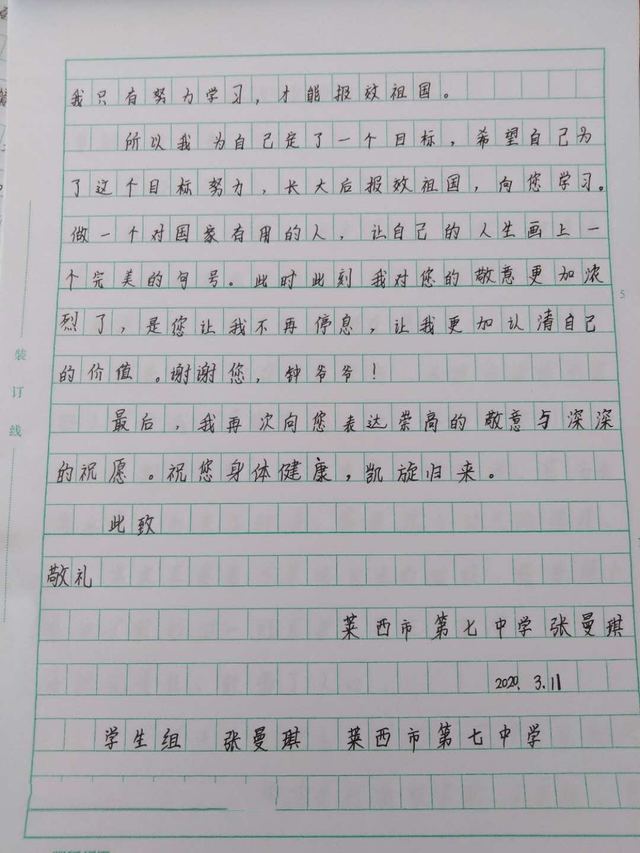 我只有努力学习，才能报效祖国。
所以我为自己定了一个目标，希望自己为
了这个目标努力，长大后报效祖国，向您学习。
做一个对国家有用的人，让自己的人生画上一
个完美的句号。此时此刻我对您的敬意更加浓
烈了，是您让我不再停息，让我更加认清自己
的价值。谢谢您，钟爷爷！
最后，我再次向您表达崇高的敬意与深深
的祝愿。祝您身体健康，凯旋归来。
此致
敬礼
莱西市第七中学张曼琪
2020.3.11
学生组 张曼琪 莱西市第七中学
装订线
5